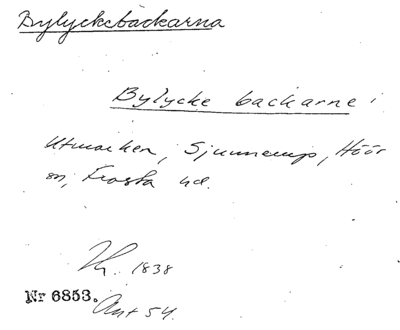 Bylyckebackarna
Bylycke backarne i
Utmarken, Sjunnerup, Höör
sn, Frosta hd.
1838
Nr 6853.
Ant 54.